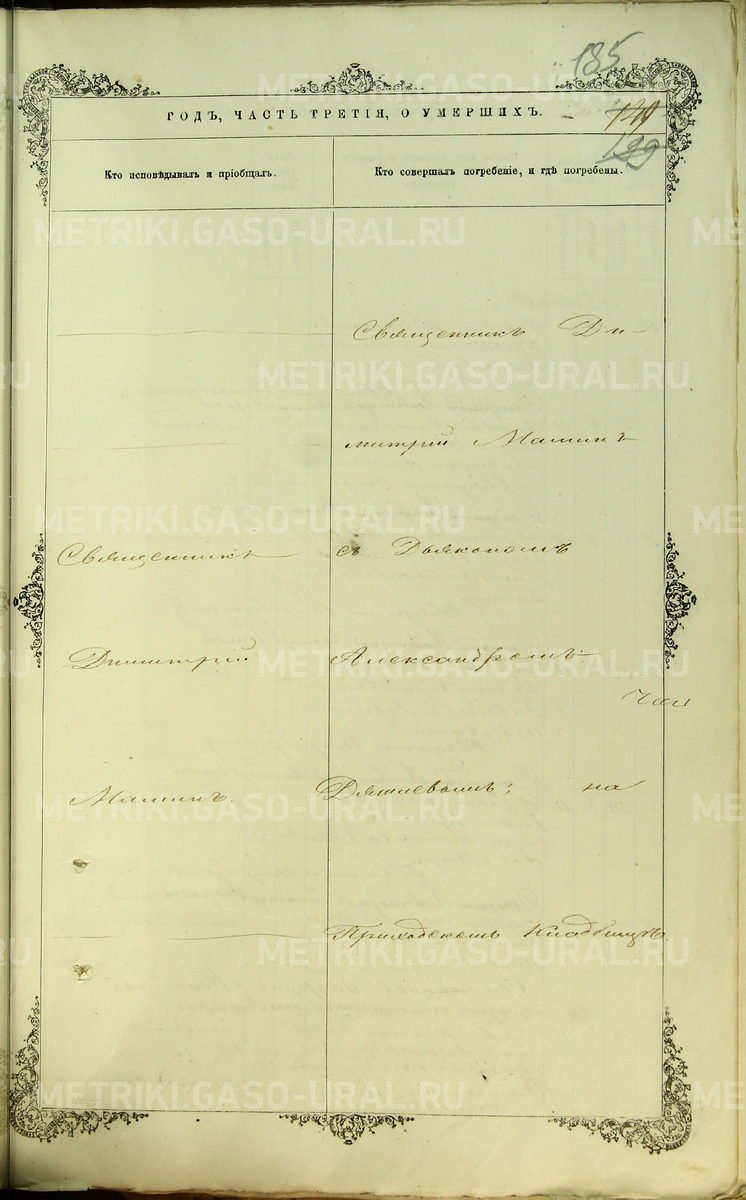 185
139
ГОДЪ, ЧАСТЬ ТРЕТІЯ, О УМЕРШИХЪ.
Кто исповѣдывалъ и пріобщалъ.
Кто совершалъ погребеніе, и гдѣ погребены.
Священникъ Ди-
митрій Маминъ
Священникъ
съ Дьякономъ
Димитрій
Александромъ
Маминъ.
на
Приходскомъ Кладбищѣ.
METRIKI.GASO-URAL.RU